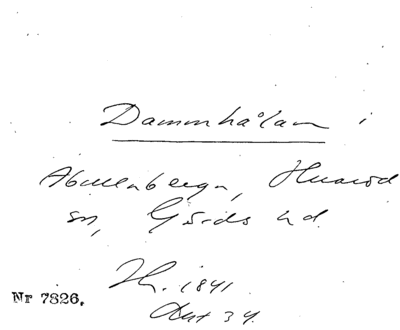 Dammhålan i
Abullaberga, Huaröd
sn, Gärds hd.
Th. 1841
Nr 7826.
Akt 34.